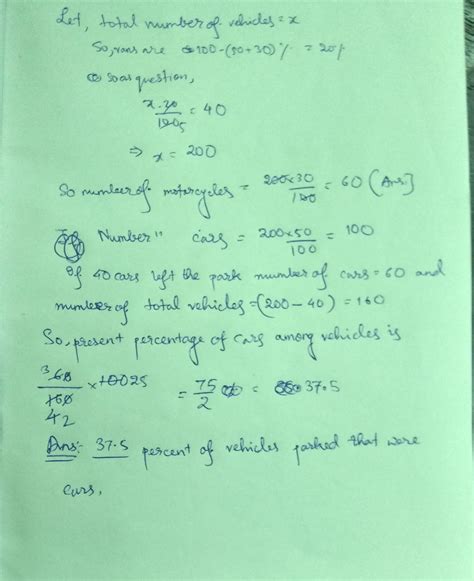 Let, total number of vehicles = x
So, vans are 100-(50+30)% = 20%
So as question,
x.20/100 5 = 40
⇒ x = 200
So number of motorcycles = 200×30/100 = 60 (Ans:]
Number " cars = 200×50/100 = 100
If 40 cars left the park number of cars = 60 and
number of total vehicles = (200-40) = 160
So, present percentage of cars among vehicles is
3 60/160 4 2 × 100 25 = 75/2 = 37.5
Ans:- 37.5 percent of vehicles parked that were
cars,